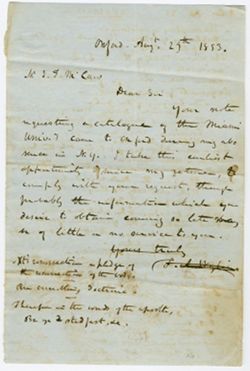 Oxford. Aug. 29th, 1853.
Dear Sir
Your note
requesting a catalogue of the Miami
Univ. came to Oxford during my ab
sence in N.Y. I take this earliest
opportunity since my return, to
comply with your request, though
probably the information which you
desire to obtain coming so late may
be of little or no service to you.
Yours truly
connection a pledge of
the connection of the
doctrine
in the words of the apostle,
Be ye stedfast, &c.